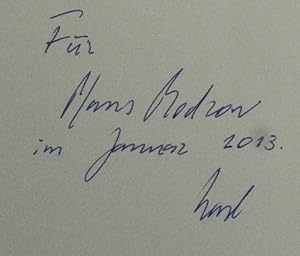 Für
Hans Modrow
im Januar 2013.